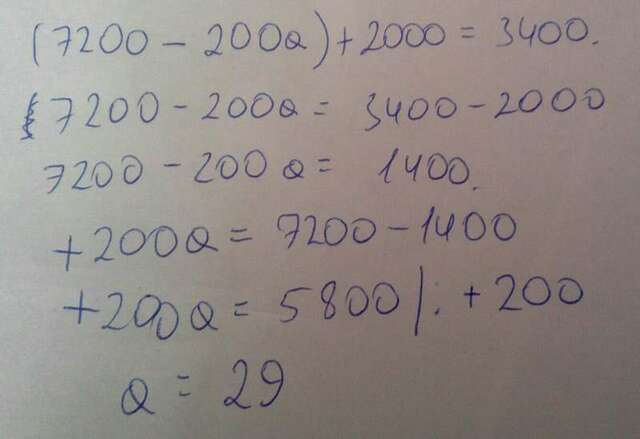 (7200 - 200a) + 2000 = 3400.
7200 - 200a = 3400 - 2000
7200 - 200a = 1400.
+200a = 7200 - 1400
+200a = 5800 |: +200
a = 29